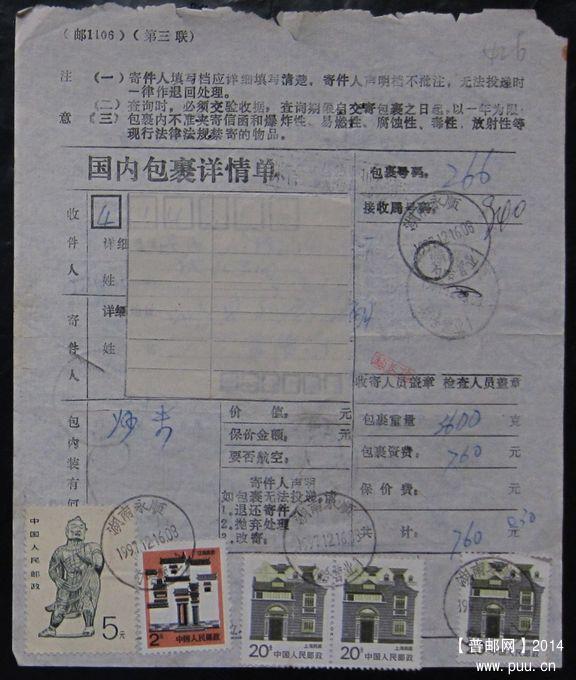 （邮1106）（第三联）
426
注意
（一）寄件人填写栏应详细填写清楚，寄件人声明栏不批注，无法投递时
一律作退回处理。
（二）查询时，必须交验收据，查询期限自交寄包裹之日起，以一年为限
（三）包裹内不准夹寄信函和爆炸性、易燃性、腐蚀性、毒性、放射性等
现行法律法规禁寄的物品。
国内包裹详情单
包裹号码：266
接收局号码：
湖南永顺
1997.12.16.08
收件人
4
详细
姓
寄件人
详细
姓
收寄人员盖章 检查人员盖章
包内装有何
价 值： 元
保价金额： 元
要否航空：
寄件人声明
如包裹无法投递，请
1.退还寄件人
2.抛弃处理
3.改寄：
包裹重量 克
包裹资费：760 元
保 价 费： 元
共 计：760 元
湖南永顺
1997.12.16.08
湖南永顺
湖南永顺
中国人民邮政
5元
江西民居
2元
中国人民邮政
上海民居
20分
中国人民邮政
上海民居
20分
中国人民邮政
上海民居
20分
中国人民邮政
【普邮网】2014
www.puu.cn